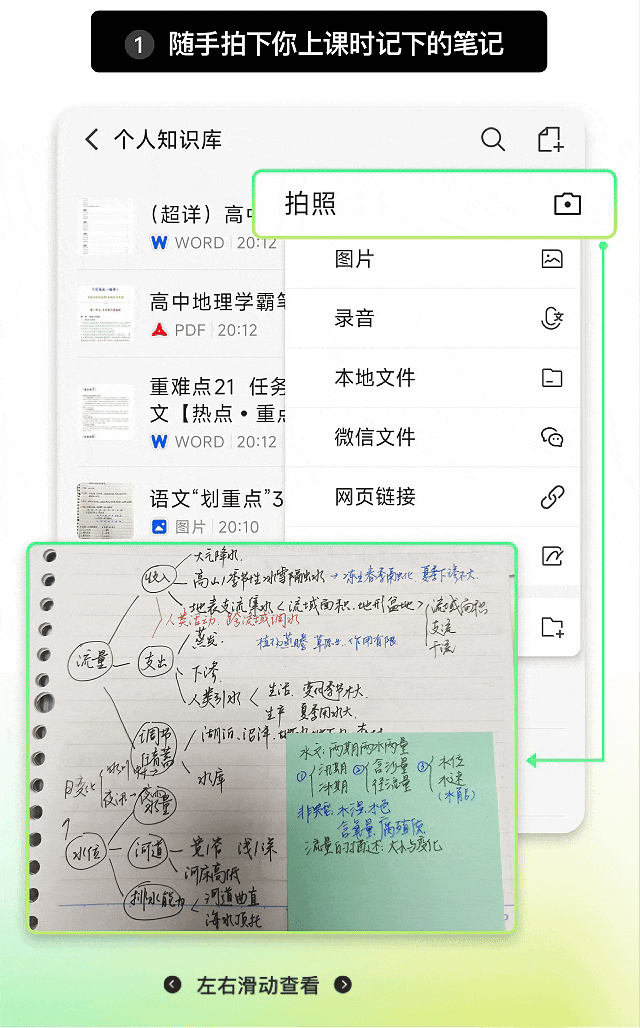 1 随手拍下你上课时记下的笔记
个人知识库
(超详)高中
WORD 20:12
高中地理学霸笔
PDF 20:12
重难点21 任务
文【热点·重点
WORD 20:12
语文“划重点”3
图片 20:10
拍照
图片
录音
本地文件
微信文件
网页链接
大气降水
收入
高山/季节性冰雪融水
地表支流集水<流域面积、地形盆地>
流域面积
支流
干流
人类活动:跨流域调水
流量
支出
蒸发
下渗
人类引水
生活
生产 夏季用水大
调节
水库
水位
河道
宽/窄 浅/深
河床高低
排水能力
河道曲直
海水顶托
水文:两期两水两量
①汛期
冰期
②含沙量
径流量
③水位
水速
(水能)
流量的描述:大小与变化
左右滑动查看